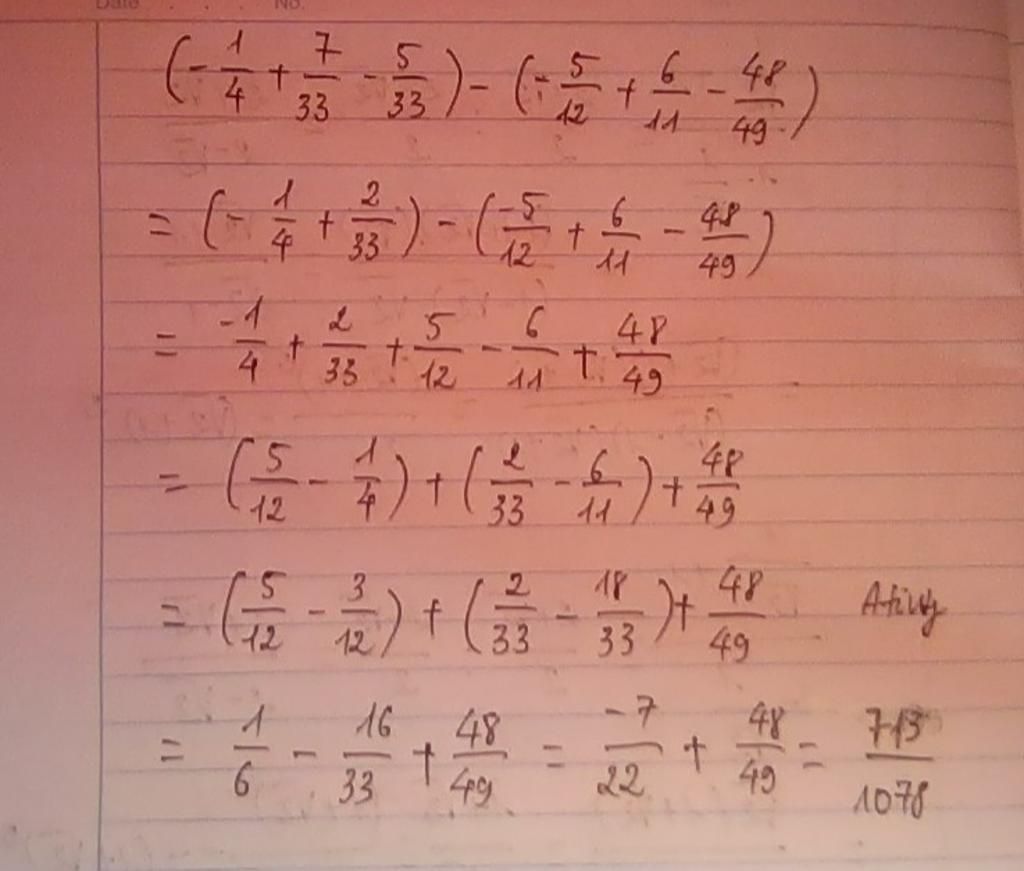 Date . . . No.
(- 1/4 + 7/33 - 5/33) - (- 5/12 + 6/11 - 48/49)
= (- 1/4 + 2/33) - (-5/12 + 6/11 - 48/49)
= -1/4 + 2/33 + 5/12 - 6/11 + 48/49
= (5/12 - 1/4) + (2/33 - 6/11) + 48/49
= (5/12 - 3/12) + (2/33 - 18/33) + 48/49
= 1/6 - 16/33 + 48/49 = -7/22 + 48/49 = 713/1078